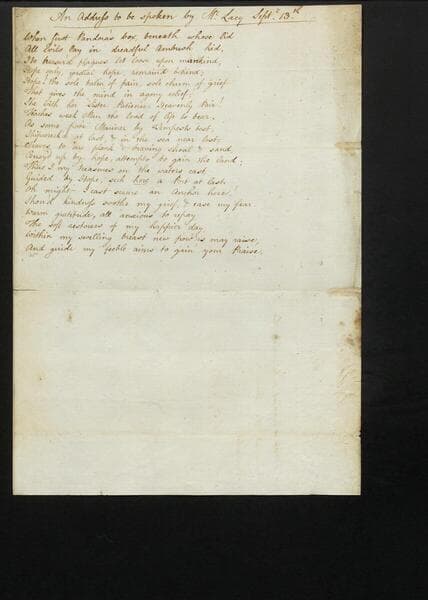 An Address to be spoken by Mr. Lacy Septr. 13th
When first Pandora's box, beneath whose lid
All Evils lay in dreadful Ambush hid,
plagues let loose upon mankind,
Hope only, genial hope, remain'd behind;
Hope! the sole balm of pain, sole charm of grief
That gives the mind in agony relief;
She with her Sister Patience, Heavenly Pair!
Teaches weak Man the load of life to bear.
As some poor Mariner by Tempests tost,
Shipwreck'd at last, & in the sea near lost
to one plank & braving shoal & sand
Buoy'd up by hope, attempts to gain the land;
Thus I my treasures on the waters cast
Guided by Hope, seek here a Port at last.
Oh might I cast secure an Anchor here!
Should kindness soothe my grief, & ease my fear
Warm gratitude, all anxious to repay
The soft restorers of my happier day
Within my swelling breast new pow'rs may raise,
And guide my feeble aims to gain your Praise.